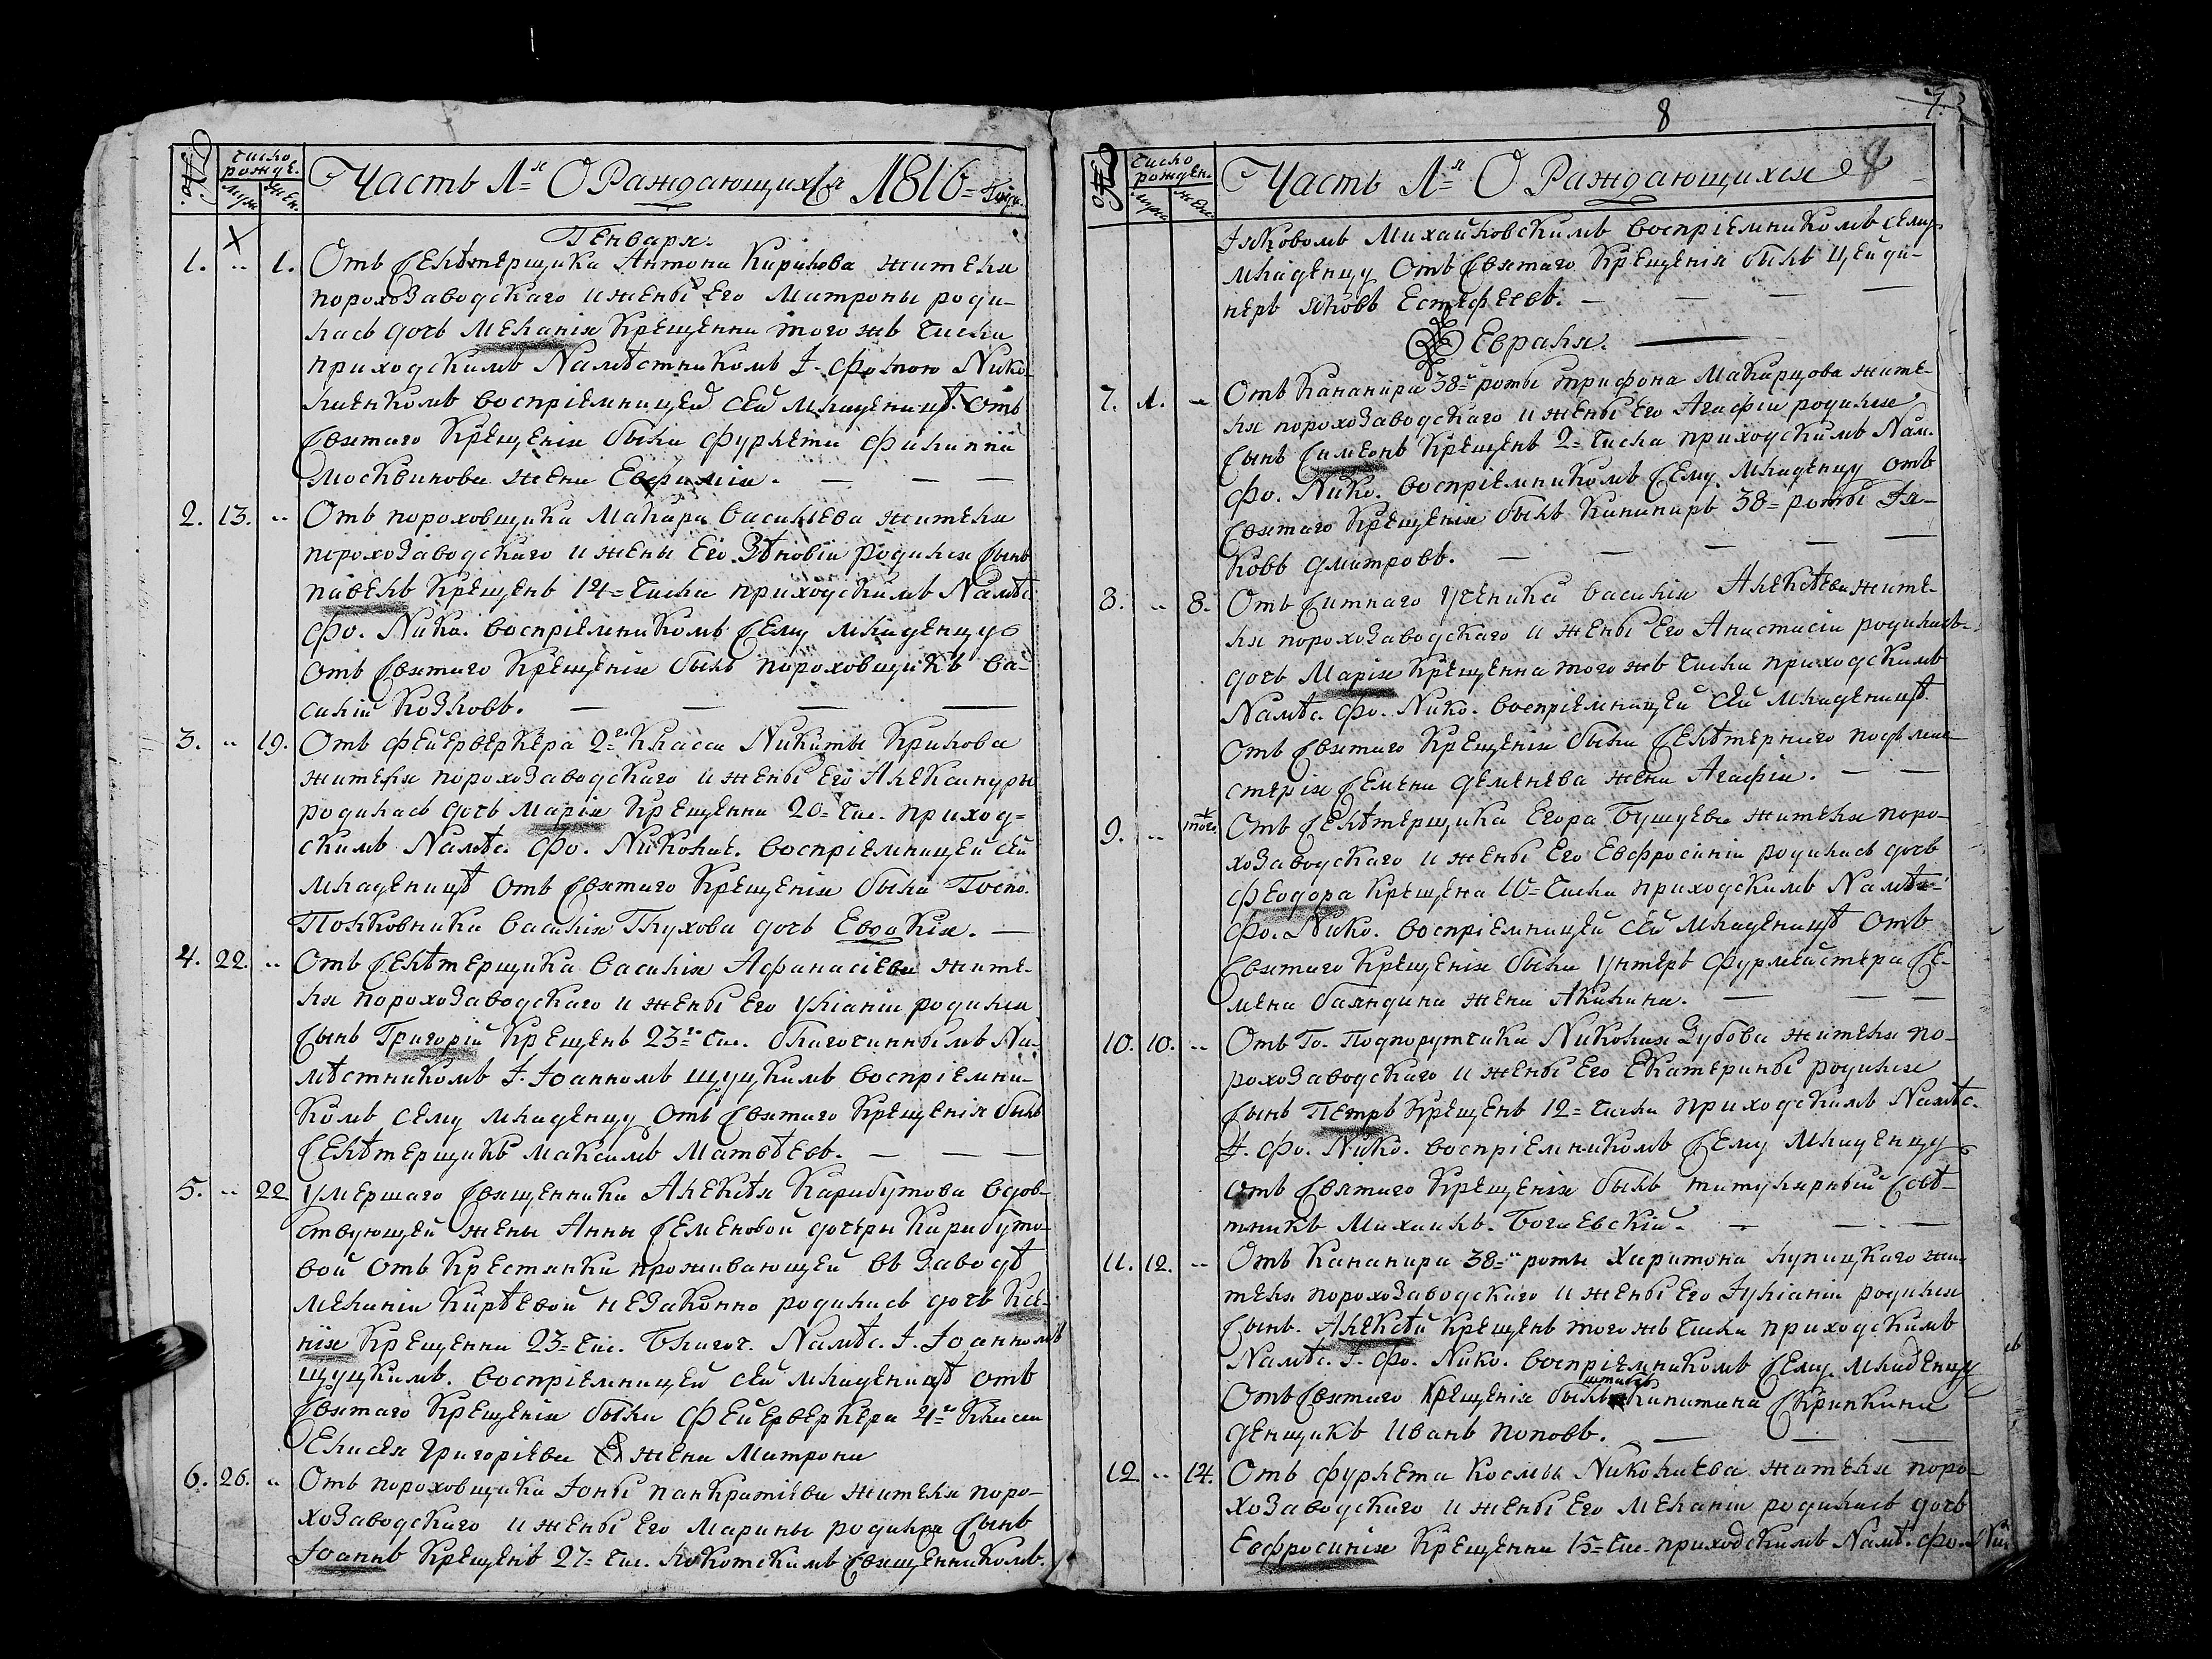 №
число рожде.
муж
жен.
Часть 1=я О Раждающихся 1816= Года.
Генваря.
1. .. 1. Отъ Селѣтерщика Антона Кирилова жителя
пороховаводскаго и жены Его Матроны роди-
лась дочь Меланія Крещенна того жъ числа
приходскимъ Намѣстникомъ І. Фомою Нико-
лаенкомъ воспріемницей сей младеницѣ отъ
Святаго Крещенія была Фурлета Филиппа
Москвинова жена Евфимія.
2. 13. .. Отъ пороховщика Макара Васильева жителя
порохозаводскаго и жены Его Зѣновіи родился Сынъ
павелъ Крещенъ 14= числа приходскимъ Намѣс.
Фо. Нико. воспріемникомъ Сему младенцу
отъ Святаго Крещенія былъ пороховщикъ Ва-
силій Козловъ.
3. .. 19. Отъ Фейерверкера 2=го Класса Никиты Крилова
жителя порохозаводскаго и жены Его Александры
родилась дочь Марія Крещенна 20= чис. приход=
скимъ Намѣс. Фо. Николае. воспріемницей сей
младеницѣ отъ Святаго Крещенія была Госпо.
Полковника Василія Глухова дочь Евдокія.
4. 22. .. Отъ Селѣтерщика Василія Афанасіева жите-
ля порохозаводскаго и жены Его Уліаніи родился
Сынъ Григорій Крещенъ 23=го чис. благочиннымъ На-
мѣстникомъ І. Іоанномъ Щуцкимъ воспріемни-
комъ сему младенцу отъ Святаго Крещенія былъ
Селѣтерщикъ Максимъ Матвѣевъ.
5. .. 22 Умершаго Священника Алексѣя Карибутова вдов-
ствующей жены Анны Семеновой дочеры Карибуто-
вой отъ Крестянки проживающей въ Заводѣ
Меланіи Кирѣевой незаконно родилась дочь Ксе-
нія Крещенна 23= чис. Благоч. Намѣс. І. Іоанномъ
Щуцкимъ. воспріемницей сей младеницѣ отъ
Святаго Крещенія была Фейерверкера 4=го Класса
Елисея Григоріева жена Матрона
6. 26. .. Отъ пороховщика Іоны панкратіева жителя поро-
хозаводскаго и жены Его Марины родился Сынъ
Іоаннъ Крещенъ 27= чис. Священникомъ
8
7.
№
число рожден.
муж
жен
Часть 1=я О Раждающихся 8
Іяковомъ Михайловскимъ воспріемникомъ сему
младенцу отъ Святаго Крещенія былъ Цейди-
неръ Яковъ Естефеевъ.
Евраля.
7. 1. .. Отъ Кананира 38=й роты трифона Макарцова жите-
ля порохозаводскаго и жены Его Агафіи родился
Сынъ Симеонъ Крещенъ 2= числа приходскимъ Нам.
Фо. Нико. воспріемникомъ Сему младенцу отъ
Святаго Крещенія былъ Кананиръ 38= роты Іа-
ковъ Дмитровъ.
8. .. 8. Отъ Ситнаго ученика Василія Алексѣева жите-
ля порохозаводскаго и жены Его Анастасіи родилась
дочь Марія Крещенна того жъ числа приходскимъ
Намѣс. Фо. Нико. воспріемницей сей младеницѣ
отъ Святаго Крещенія была Селѣтернаго подъ ма-
стерія Семена Деменева жена Агафія.
9. .. того. Отъ Селѣтерщика Егора Бушуева жителя поро-
хозаводскаго и жены Его Евфросиніи родилась дочь
Феодора Крещена 10= числа приходскимъ Намѣс.
Фо. Нико. воспріемницей сей младеницѣ отъ
Святаго Крещенія была Унтеръ Фурмейстера Се-
мена баяндина жена Акилина.
10. 10. .. Отъ Го. Подпорутчика Николая Зубова жителя по-
рохозаводскаго и жены Его Екатерины родился
Сынъ Петръ Крещенъ 12= числа приходскимъ Намѣс.
І. Фо. Нико. воспріемникомъ Сему младенцу
отъ Святаго Крещенія былъ титулярный Совѣ-
тникъ Михаилъ Богаевскій.
11. 12. .. Отъ Кананира 38=й роты Харитона лупицкаго жи-
теля порохозаводскаго и жены Его Іуліаніи родился
Сынъ. Алексѣй Крещенъ того жъ числа приходскимъ
Намѣс. І. Фо. Нико. воспріемникомъ Сему младенцу
отъ Святаго Крещенія былъ штабсъ Капитана Скрипкина
денщикъ Иванъ поповъ.
12. .. 14. Отъ Фурлета Космы Николаева жителя поро-
хозаводскаго и жены Его Меланіи родилась дочь
Евфросинія Крещенна 15= чис. приходскимъ Намѣ. Фо. Ни.